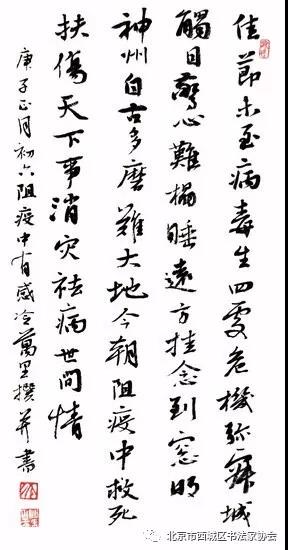 佳節未至病毒生四處危機弥城
觸目驚心難榻睡遠方挂念到窓明
神州自古多磨難大地今朝阻疫中救死
扶傷天下事消灾祛病世間情
庚子正月初六阻疫中有感冷萬里撰并書
北京市西城区书法家协会